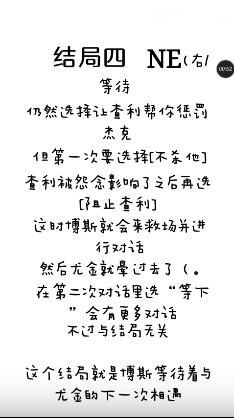 结局四 NE(右/
00:52
等待
仍然选择让查利帮你惩罚
杰克
但第一次要选择[不杀他]
查利被怨念影响了之后再选
[阻止查利]
这时博斯就会来救场并进
行对话
然后尤金就晕过去了（。
在第二次对话里选“等下
”会有更多对话
不过与结局无关
这个结局就是博斯等待着与
尤金的下一次相遇